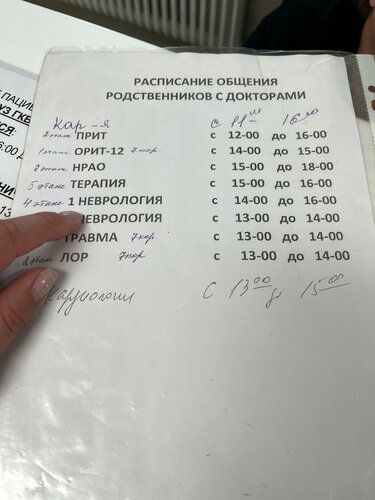 ПАЦИЕ
УЗ ГКБ
РАСПИСАНИЕ ОБЩЕНИЯ
РОДСТВЕННИКОВ С ДОКТОРАМИ
Кар-я с 11-00 16-00
2 этаж ПРИТ с 12-00 до 16-00
1 этаж ОРИТ-12 7 кор с 14-00 до 15-00
7 этаж НРАО с 15-00 до 18-00
5 этаж ТЕРАПИЯ с 15-00 до 16-00
4 этаж 1 НЕВРОЛОГИЯ с 14-00 до 16-00
НЕВРОЛОГИЯ с 13-00 до 14-00
ТРАВМА 7 кор с 13-00 до 14-00
2 этаж ЛОР 7 кор с 13-00 до 14-00
Кардиология с 13 00 до 15 00